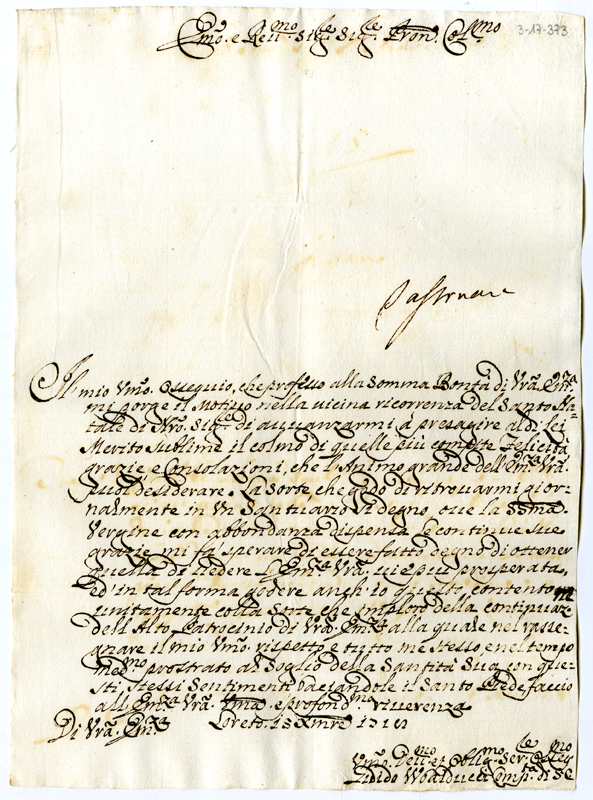 3-17-373
Emo. e Reumo. Sigre Sigre Pron. Collmo
Il mio Umo. Ossequio, che professo alla Somma Bontà di Vra. Emza
mi porge il Motiuo nella uicina ricorrenza del Santo Na=
tale di Nro. Sigre di auuanzarmi à presagire al di lei
Merito sublime il colmo di quelle più compite Felicità
grazie, e Consolazioni, che l'Animo grande dell'Emza Vra.
puol desiderare. La Sorte, che godo di ritrouarmi gior-
nalmente in Un Santuario sì degno, oue la SSma.
Vergine con abbondanza dispensa le continue sue
grazie, mi fà sperare di essere fatto degno di ottener
quella di uedere l'Emza Vra. uie più prosperata,
ed' in tal forma godere anch'io questo contento
unitamente colla Sorte che imploro della continuaze
dell'Alto Patrocinio di Vra. Emza alla quale nel rasse-
gnare il mio Umo. rispetto, e tutto me stesso, e nel tempo
medmo prostrato al Soglio della Santità Sua con que-
sti stessi Sentimenti baciandole il Santo Piede faccio
all'Emza Vra. Uma. e profondma riuerenza
Di Vra. Emza Loreto. 18 Xmre
Umo. Deumo et Obligmo Serre Ossmo